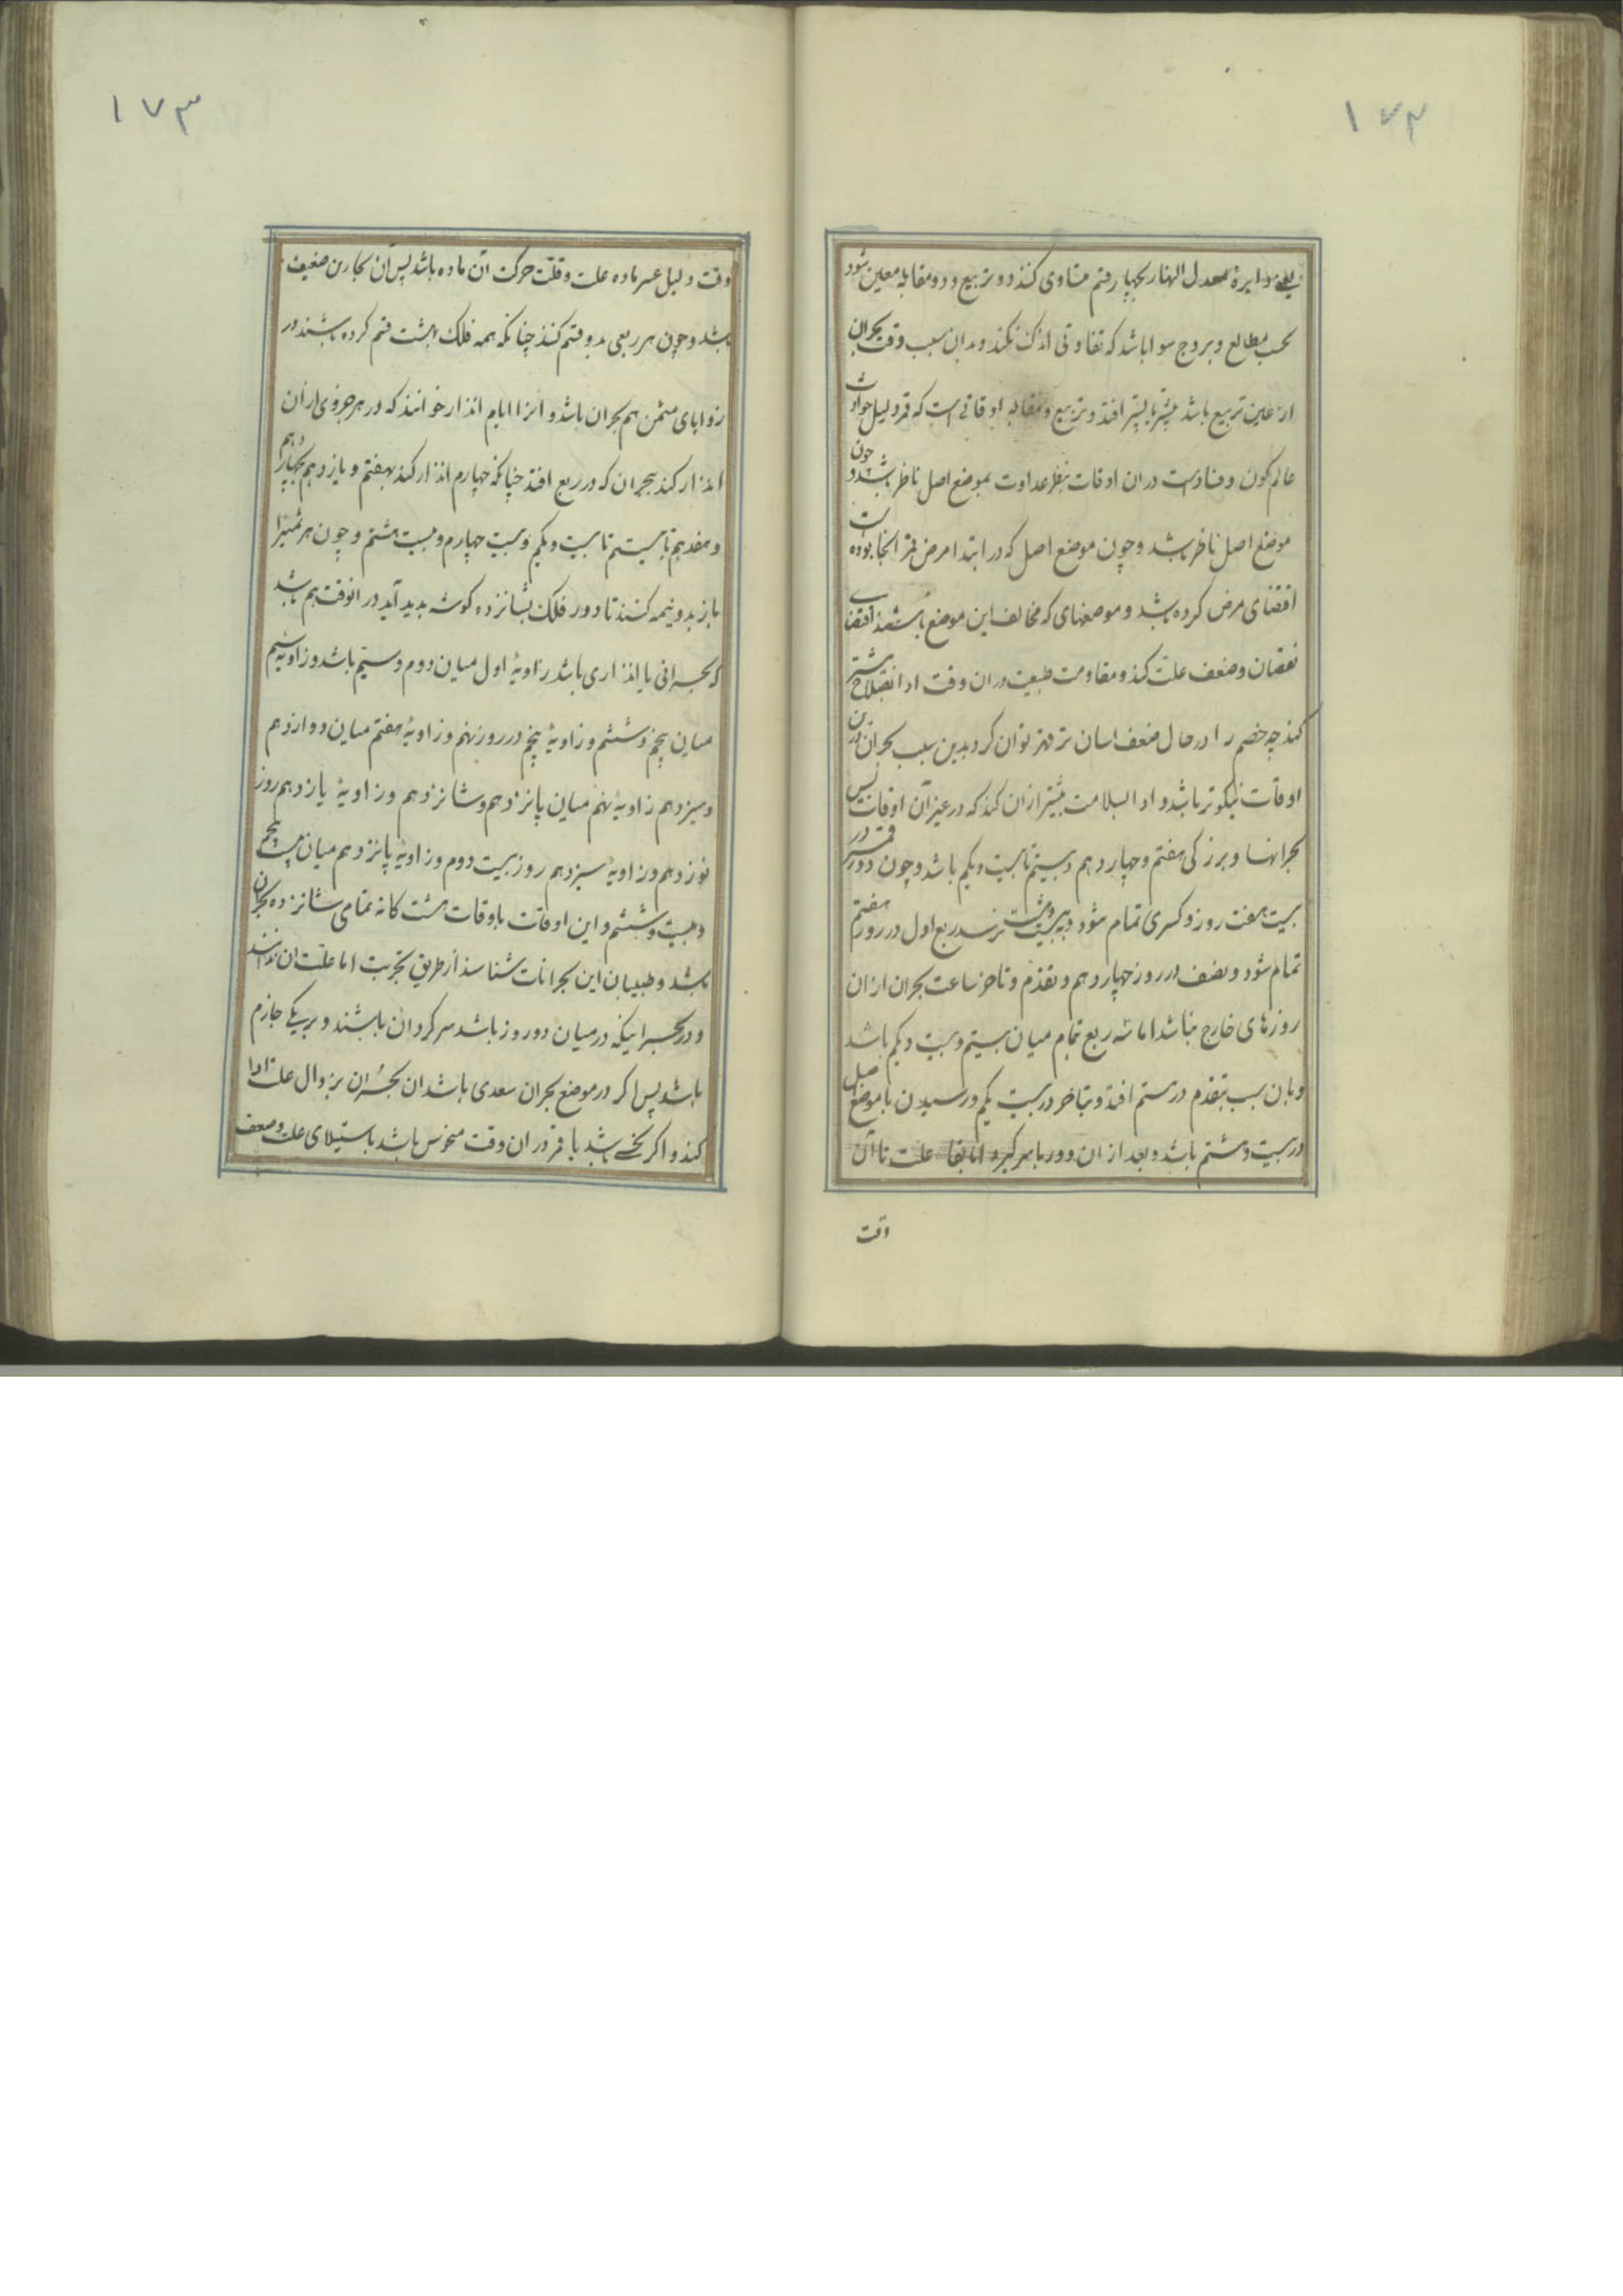 ۱۷۲
دایرهٔ معدل النهار بچهار قسم متساوی کنند دو تربیع و دو مقابله معین شود
بحسب مطالع و بروج سوا باشد که تفاوتی اندک نکند و بدان سبب وقت بحران
از عین تربیع باشد پیشتر یا پستر افتد و تربیع و مقابله اوقاتی است که قمر دلیل حوادث
عالم کون و فساد است در ان اوقات بنظر عداوت بموضع اصل ناظر باشد و چون
موضع اصل ناظر باشد و چون موضع اصل که در ابتدا مرض قمر انجا بوده است
اقتضای مرض کرده باشد و موضعهای که مخالف این موضع باشند اقتضای
نقصان و ضعف علت کند و مقاومت طبیعت در ان وقت او را بیشتر
کند چه خصم را در حال ضعف اسان تر قهر توان کرد بدین سبب بحران درین
اوقات نیکوتر باشد و ادا بسلامت بیشتر ازان کند که در غیر آن اوقات پس
بحرانها و بزرکی هفتم و چهاردهم و بیستم تا بیست ویکم باشد و چون دور قمر در
بیست هفت روز و کسری تمام شود و به بیست وهشت نرسد ربع اول در روز هفتم
تمام شود و نصف در روز چهاردهم و تقدم و تاخر ساعت بحران از ان
روزهای خارج نباشد اما سه ربع تمام میان بیستم و بیست ویکم باشد
و بان سبب بتقدم در بیستم افتد و بتاخر در بیست یکم و رسیدن با موضع اصل
در بیست وهشتم باشد و بعد از ان دور با سر کیرد اما بقا علت تا آن
وقت
۱۷۳
وقت دلیل عسر ماده علت و قلت حرکت آن ماده باشد پس آن بحارین ضعیف
باشد و چون هر ربعی بدو قسم کنند چنانکه همه فلک بهشت قسم کرده باشند در
زوایای مثمن هم بحران باشد و انرا ایام انذار خوانند که در هر جزوی از آن
انذار کند ببحران که در ربع افتد چنانکه چهارم انذار کند بهفتم و یازدهم بچهاردهم
و هفدهم به بیستم تا بیست ویکم و بیست چهارم و بیست هشتم و چون هر ثمنی را
باز بدو نیمه کنند تا دور فلک بشانزده کوشه بدید آید در انوقت هم باشد
که بحرانی یا انذاری باشد زاویهٔ اول میان دوم و سیم باشد و زاویه سیم
میان پنجم و ششم و زاویهٔ پنجم در روز نهم و زاویهٔ هفتم میان دوازدهم
و سیزدهم زاویهٔ نهم میان پانزدهم و شانزدهم و زاویهٔ یازدهم روز
نوزدهم و زاویهٔ سیزدهم روز بیست دوم و زاویهٔ پانزدهم میان بیست پنجم
و بیست وششم و این اوقات باوقات هشت کانه تمامی شانزده بحران
باشد و طبیبان این بحرانات شناسند از طریق تجربت اما علت ان ندانند
و در بحرانیکه در میان دو روز باشد سرکردان باشند و بر یکی جازم
باشد پس اکر در موضع بحران سعدی باشد ان بحران بزوال علت ادا
کند و اکر نحسی باشد یا قمر در ان وقت منحوس باشد باستیلای علت و ضعف